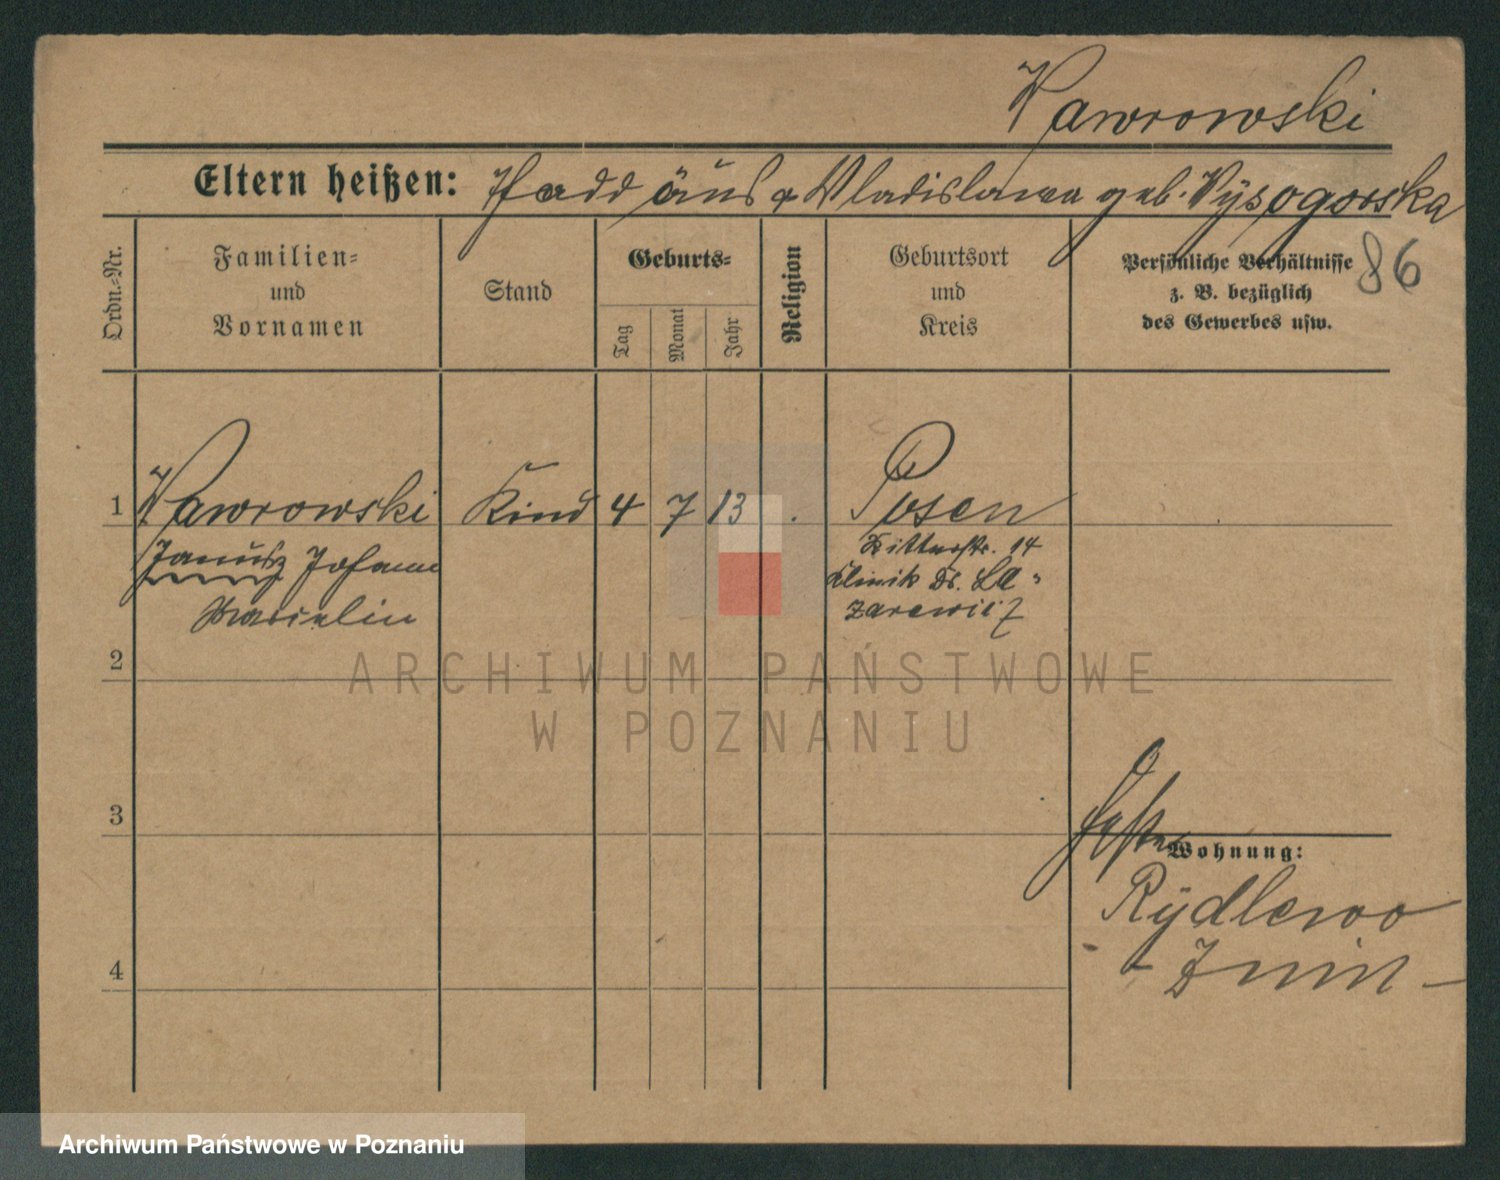 Wawrowski
Eltern heißen: Thaddäus & Wladislawa geb. Wysogorska
86
Ordn.-Nr.
Familien-
und
Vornamen
Stand
Geburts-
Tag
Monat
Jahr
Religion
Geburtsort
und
Kreis
Persönliche Verhältnisse
z. B. bezüglich
des Gewerbes usw.
1 Wawrowski Kind 4 7 13 Posen
Janusz Johann
Marcelin
Ritterstr. 14
Klinik Dr. La-
zarewicz
2
3
Wohnung:
Rydlewo
- Znin -
4
ARCHIWUM PAŃSTWOWE
W POZNANIU
Archiwum Państwowe w Poznaniu